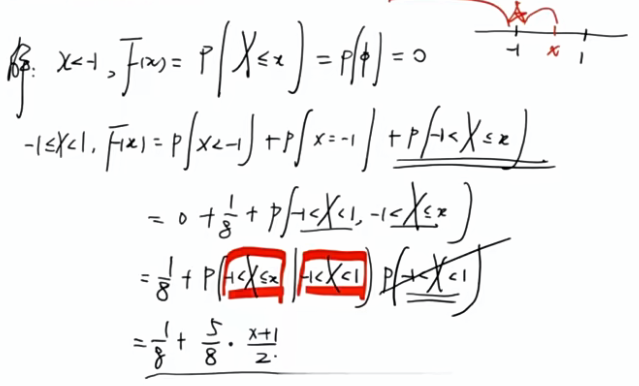 -1 x 1
解: x<-1, F(x)= P(X≤x) = P(φ) = 0
-1≤x<1, F(x)= P(X<-1)+P(X=-1)+P(-1<X≤x)
= 0 + 1/8 + P(-1<X<1, -1<X≤x)
= 1/8 + P(-1<X≤x | -1<X<1) P(-1<X<1)
= 1/8 + 5/8 · (x+1)/2